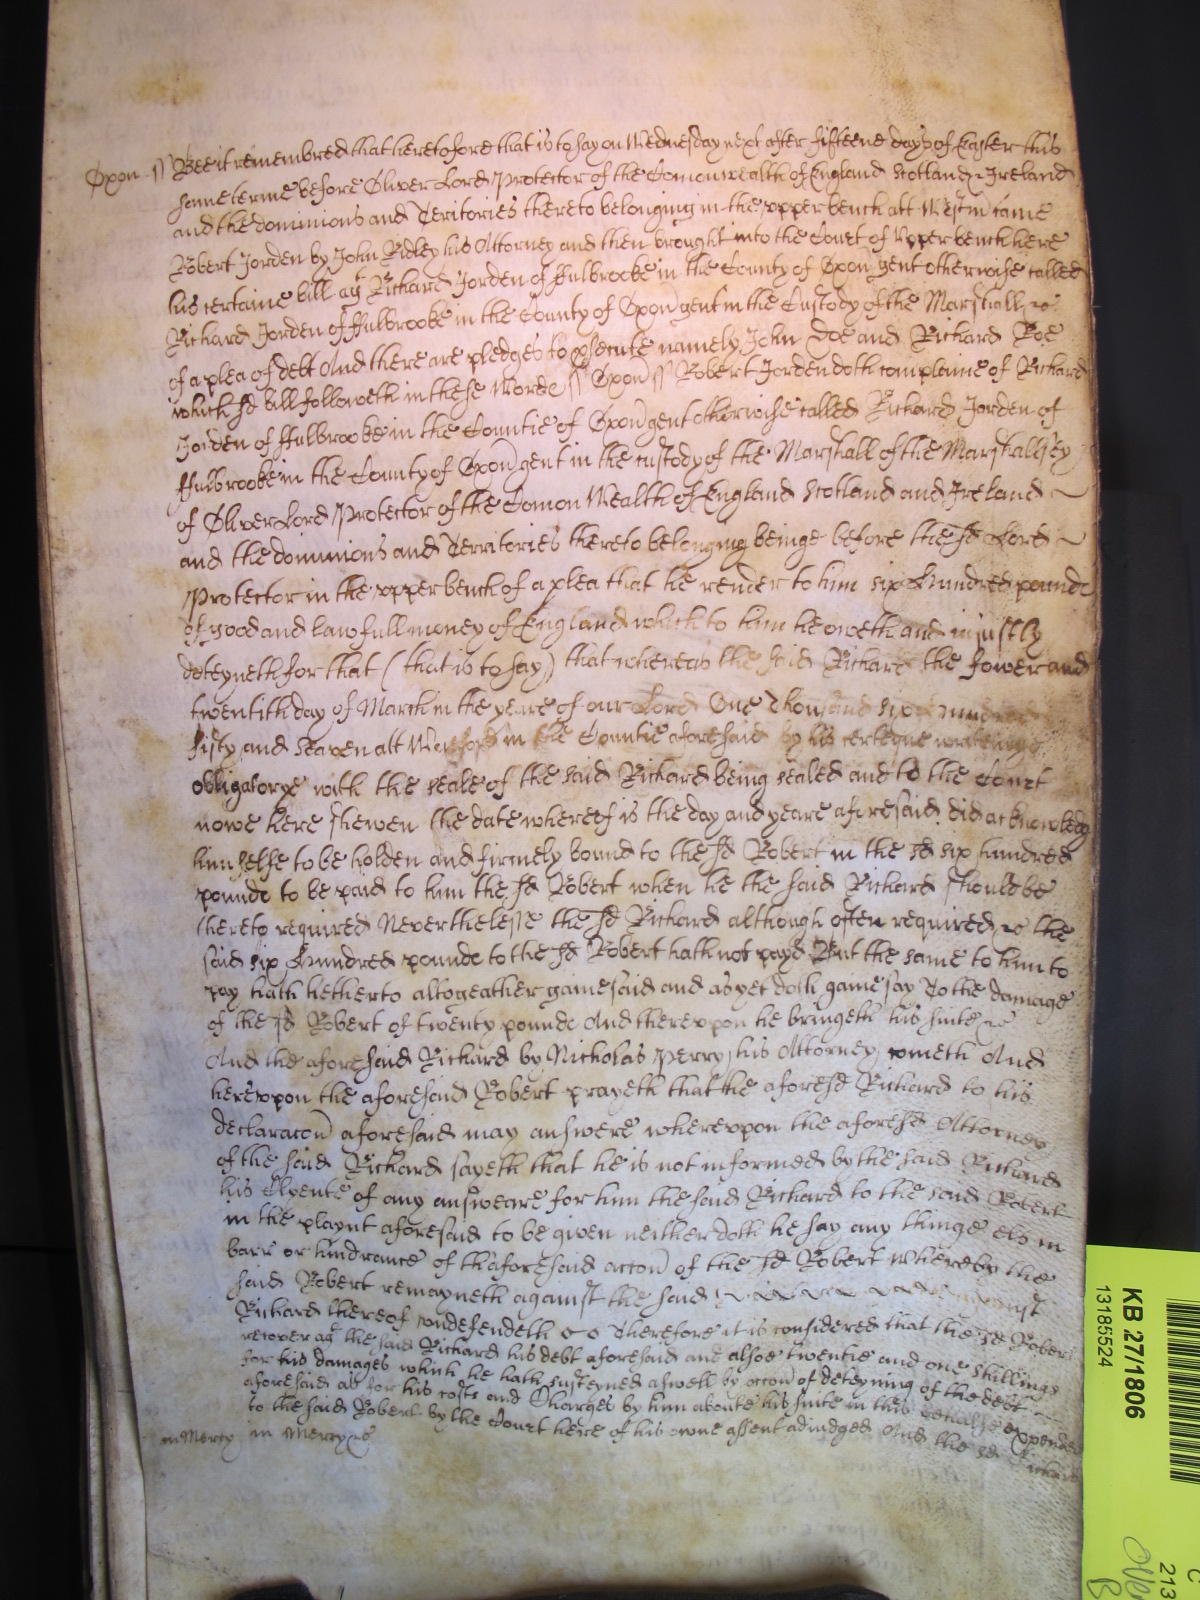 Oxon ss Bee it remembred that heretofore that is to say on Wednesday next after fifteene dayes of Easter this
same terme before Oliver Lord Protector of the Comonwealth of England Scotland & Ireland
and the dominions and Teritories thereto belonging in the vpper bench att Westm came
Robert Jorden by John Ridley his Attorney and then brought into the Court of vpper bench here
his certaine bill agt Richard Jorden of ffulbrooke in the County of Oxon gent otherwise called
Richard Jorden of ffulbrooke in the County of Oxon gent in the Custody of the Marshall &c
of a plea of debt And there are pledges to psecute namely John Doe and Richard Roe
which sd bill followeth in these words ss Oxon ss Robert Jorden doth complaine of Richard
Jorden of ffulbrooke in the Countie of Oxon gent otherwise called Richard Jorden of
ffulbrooke in the County of Oxon gent in the custody of the Marshall of the Marshallsey
of Oliver Lord Protector of the Comon Wealth of England Scotland and Ireland
and the dominions and Territories thereto belonging beinge before the sd Lord
Protector in the vpper bench of a plea that he render to him six hundred pounds
of good and lawfull money of England which to him he oweth and iniustly
deteyneth for that (that is to say) that whereas the said Richard the fower and
twentith day of March in the yeare of our Lord One Thousand six hundred
fifty and seaven att in the Countie aforesaid by his certeyne writeing
obligatorye with the seale of the said Richard being sealed and to the Court
nowe here shewen the date whereof is the day and yeare aforesaid did acknowledg
him selfe to be holden and firmely bound to the sd Robert in the sd six hundred
pounds to be paid to him the sd Robert when he the said Richard should be
thereto required Neverthelesse the sd Richard although often required &c the
said six hundred pounds to the sd Robert hath not payd But the same to him to
pay hath hetherto altogeather gainesaid and as yet doth gainesay To the damage
of the sd Robert of twenty pounds And therevpon he bringeth his suite &c
And the aforesaid Richard by Nicholas Perry his Attorney cometh And
herevpon the aforesaid Robert prayeth that the aforesd Richard to his
declaracon aforesaid may answere wherevpon the aforesd Attorney
of the said Richard sayeth that he is not informed by the said Richard
his Clyente of any answeare for him the said Richard to the said Robert
in the playnt aforesaid to be given neither doth he say any thinge els in
barr or hindrance of thaforesaid accon of the sd Robert whereby the
said Robert remayneth against the said
Richard thereof vndefendeth &c Therefore it is considered that the sd Robert
recover agt the said Richard his debt aforesaid and alsoe twentie and one shillings
for his damages which he hath susteyned aswell by accon of deteyning of the debt
aforesaid as for his costs and Charges by him aboute his suite in this expended
to the said Robert by the Court here of his owne assent adiudged And the sd Richard
in Mercy in Mercy &c
KB 27/1806
13185524
213